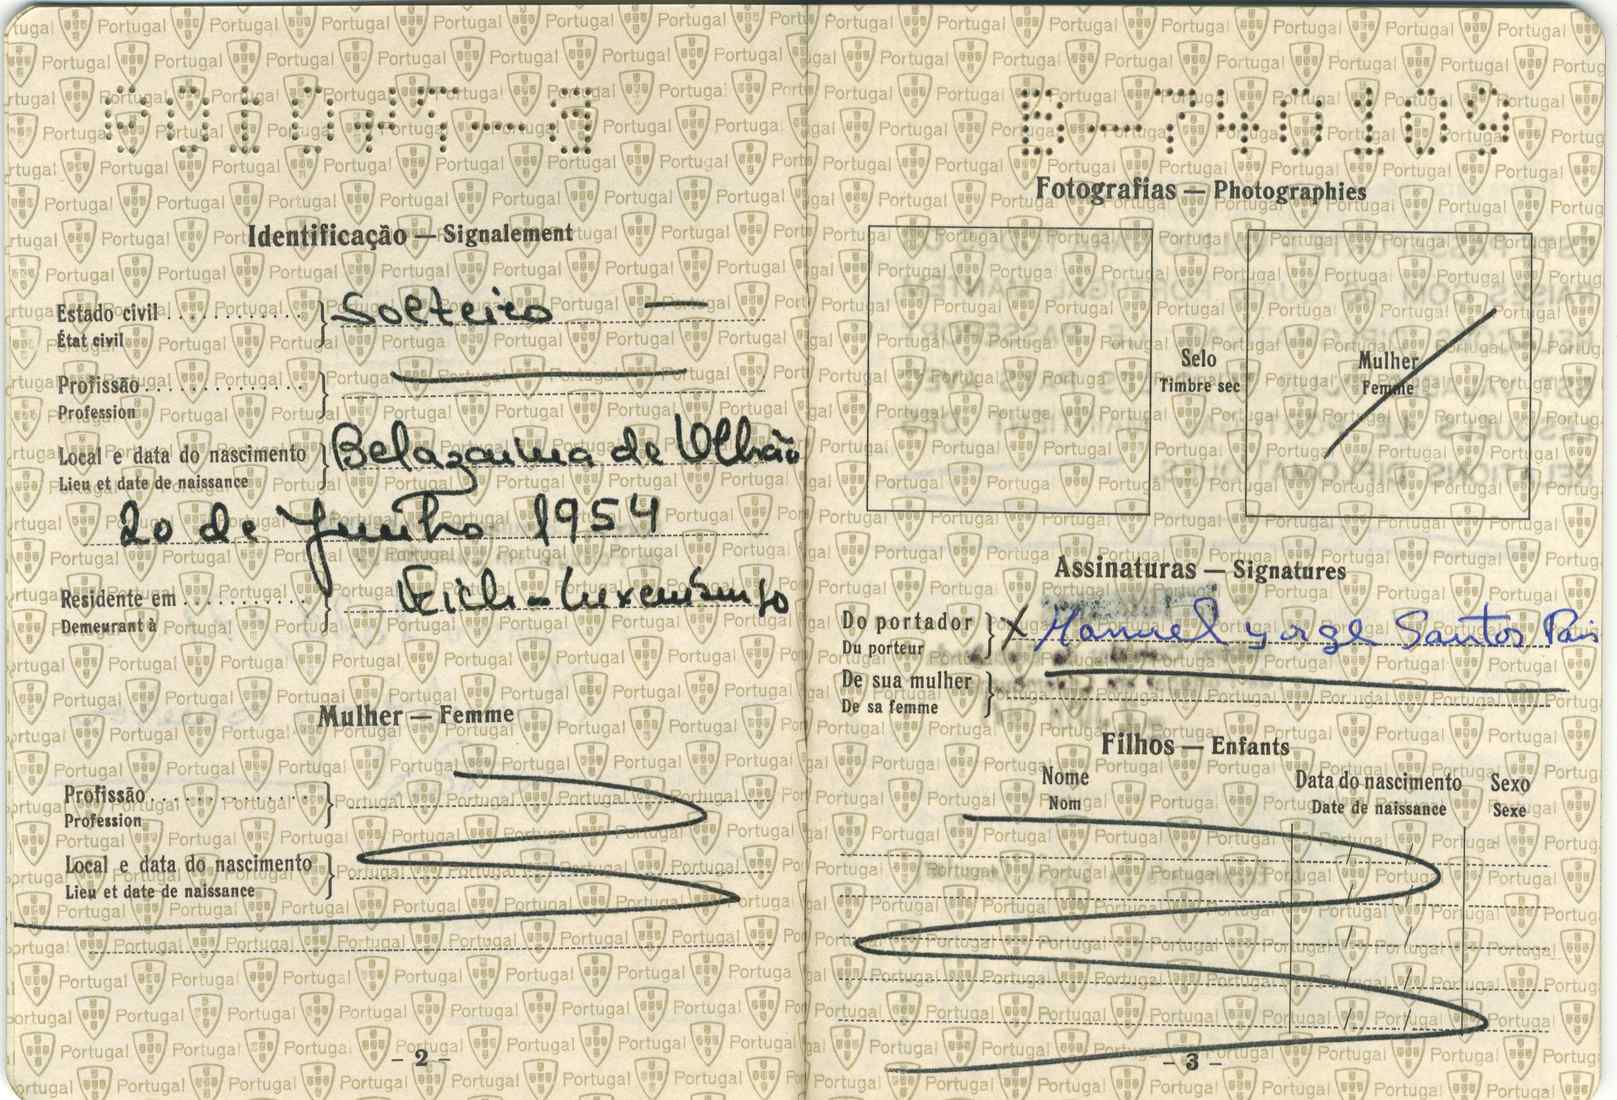 B-740109
Identificação — Signalement
Estado civil
État civil
Solteiro —
Profissão
Profession
Local e data do nascimento
Lieu et date de naissance
de Olhão
20 de Junho 1954
Residente em
Demeurant à
Eich - Luxemburgo
Mulher — Femme
Profissão
Profession
Local e data do nascimento
Lieu et date de naissance
– 2 –
B-740109
Fotografias — Photographies
Selo
Timbre sec
Mulher
Femme
Assinaturas — Signatures
Do portador
Du porteur
X Manuel Jorge Santos Pais
De sua mulher
De sa femme
Filhos — Enfants
Nome
Nom
Data do nascimento
Date de naissance
Sexo
Sexe
– 3 –